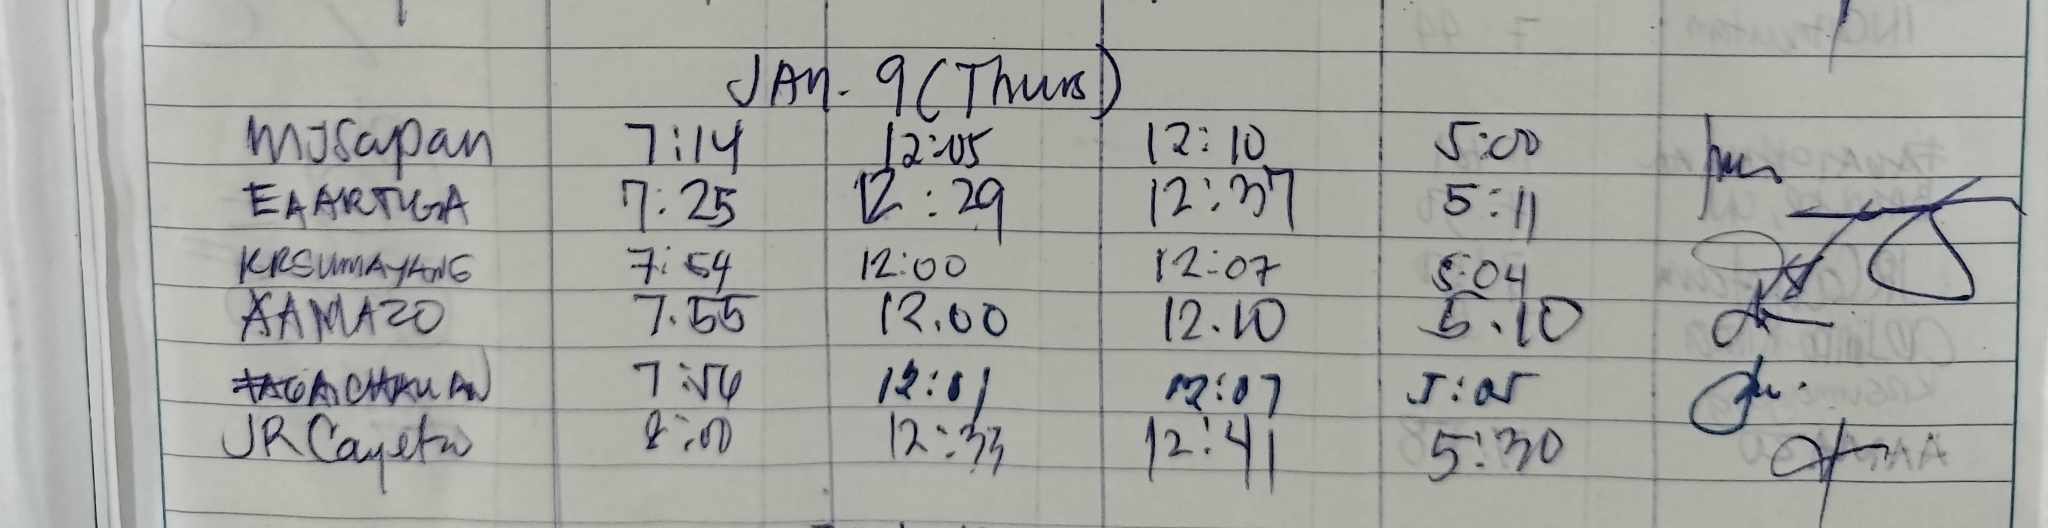 JAN. 9 (Thurs)
MJSapan 7:14 12:05 12:10 5:00
EAARTIGA 7:25 12:29 12:37 5:11
KRSUMAYANG 7:54 12:00 12:07 5:04
AAMAZO 7.55 12.00 12.10 5.10
7:56 12:01 12:07 5:05
JR Cayeto 8:00 12:33 12:41 5:30